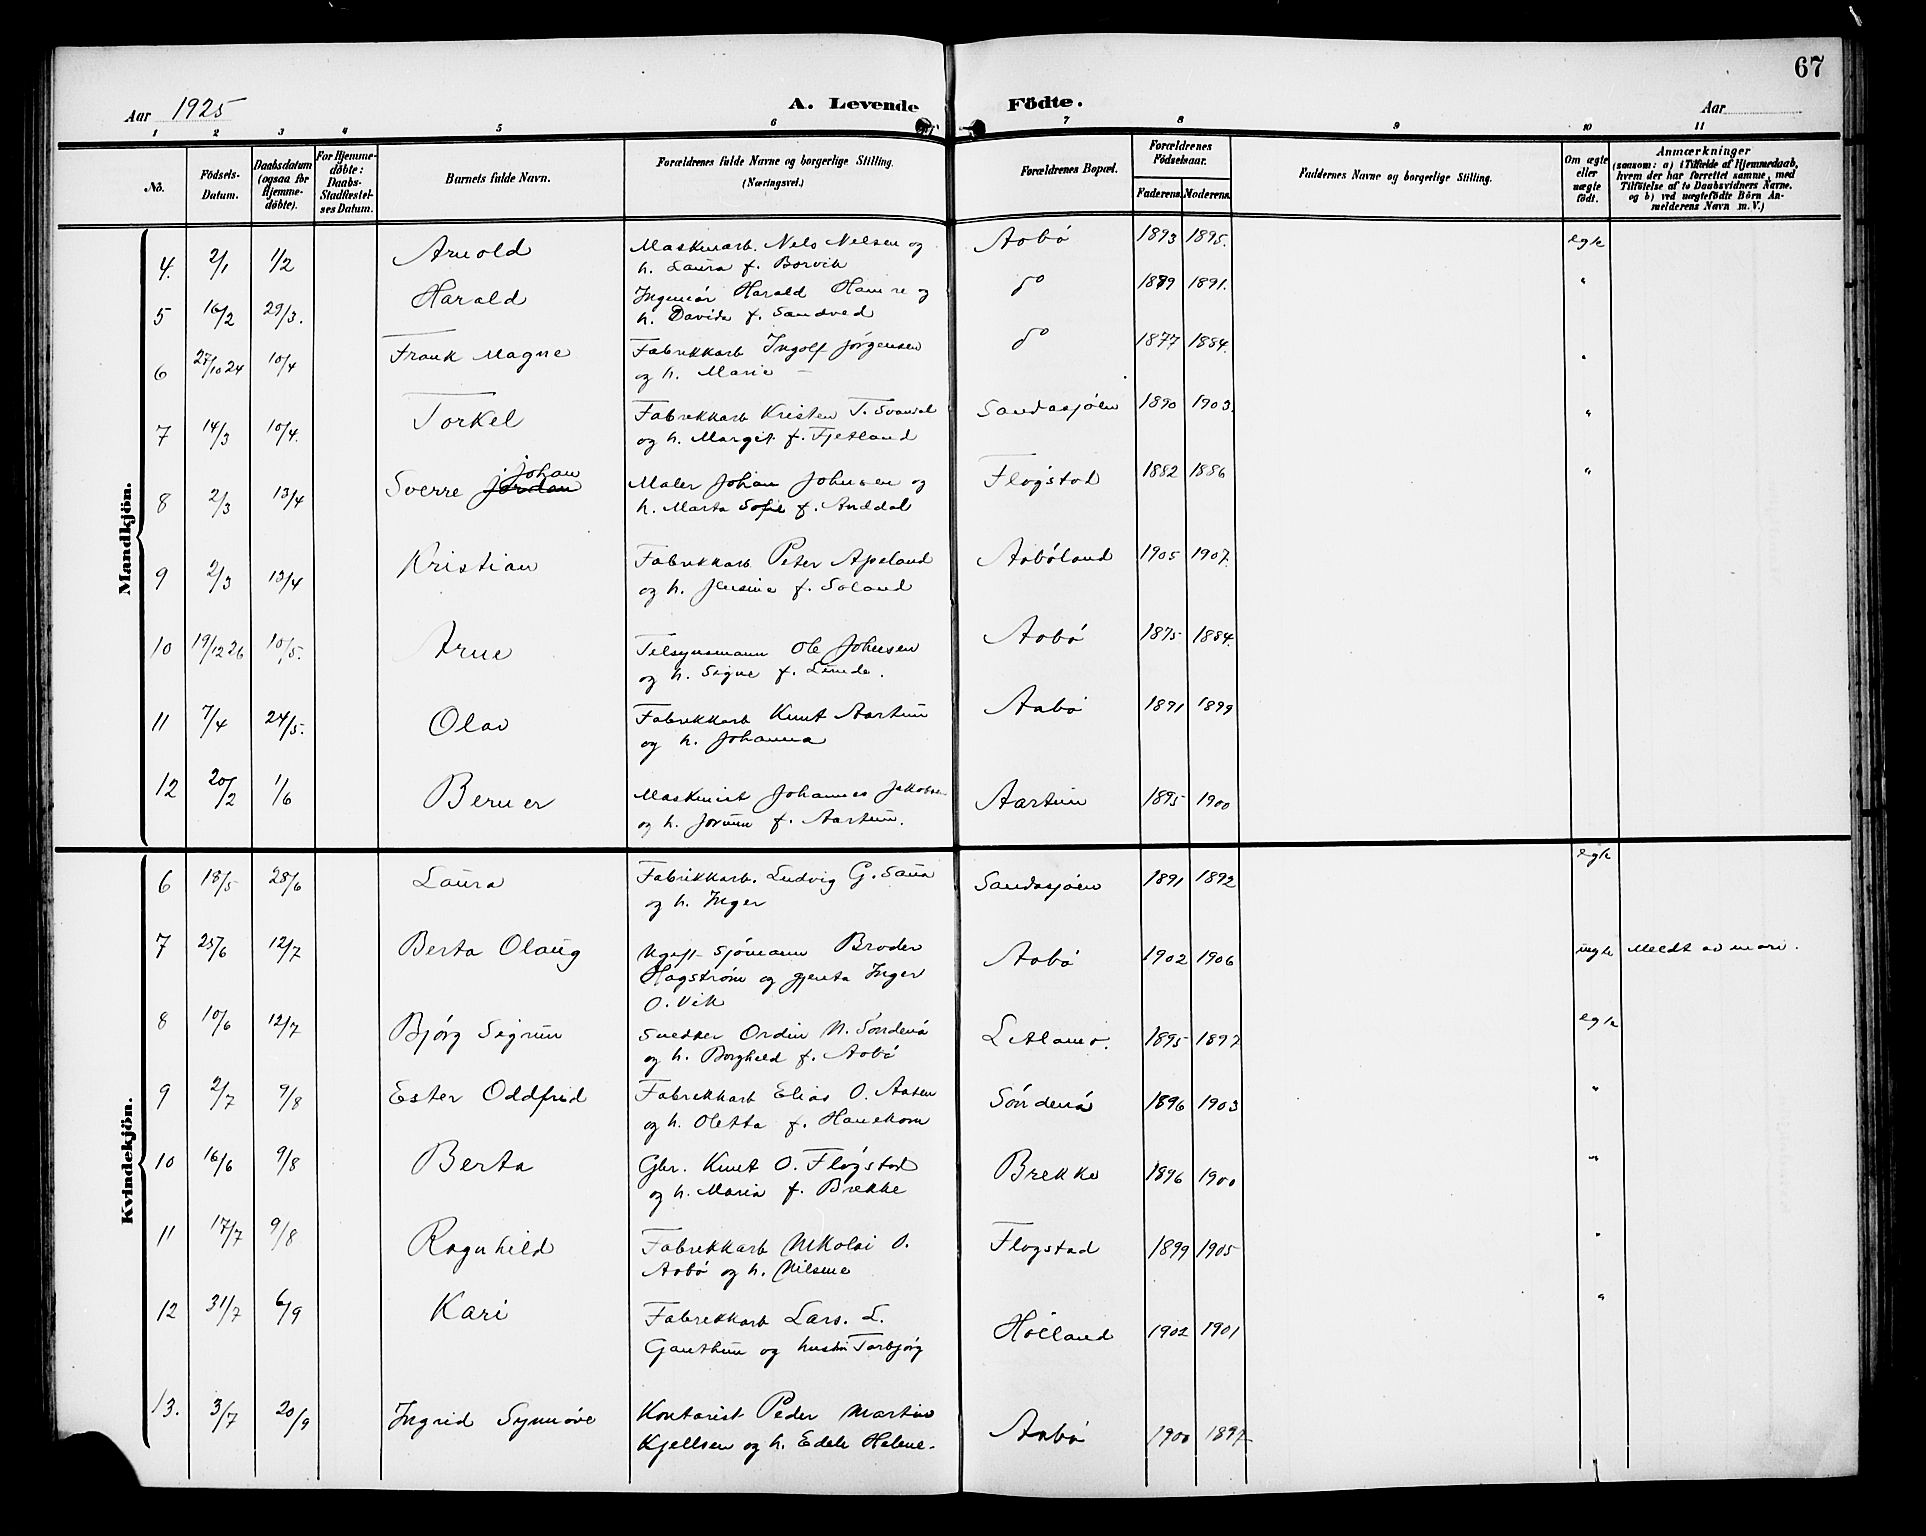 67
Aar 1925 A. Levende Födte. Aar
1 2 3 4 5 6 7 8 9 10 11
No. | Födsels-Datum. | Daabsdatum (ogsaa for Hjemme-döbte). | For Hjemme-döbte: Daabs-Stadfæstel-ses Datum. | Barnets fulde Navn. | Forældrenes fulde Navne og borgerlige Stilling. (Næringsvei.) | Forældrenes Bopæl. | Forældrenes Födselsaar. Faderens. Moderens. | Faddernes Navne og borgerlige Stilling. | Om ægte eller uægte födt. | Anmærkninger (saasom: a) i Tilfælde af Hjemmedaab, hvem der har forrettet samme, med Tilföielse af to Daabsvidners Navne. og b) ved uægtefödte Börn An-melderens Navn m. V.)
Mandkjön.
4. 2/1 1/2 Arnold Maskinarb. Nels Nelsen og Aabö 1893 1895. egte
h. Laura f. Borvik
5 16/2 29/3. Harald Ingeniör Harald Hamre og do 1889 1891. "
h. Davida f. Sandved
6 27/10 24 10/4 Frank Magne Fabrikkarb Ingolf Jörgensen do 1877 1884. "
og h. Marie
7 14/3 10/4. Torkel Fabrikkarb Kristen T. Svandal Saudasjöen 1890 1903. "
og h. Margit f. Fjetland
8 2/3 13/4 Sverre Johan Maler Johan Johnsen og Flögstad 1882 1886 "
h. Marta Sofie f. Anddal
9 2/3 13/4 Kristian Fabrikkarb Peter Apeland Aaböland 1905 1907.
og h. Jensine f. Soland
10 19/12 26 10/5. Arne Tilsynsmann Ole Johnsen Aabö 1875 1884.
og h. Signe f. Lunde.
11 7/4 24/5. Olav Fabrikkarb Knut Aartun Aabö 1891 1899
og h. Johanna
12 20/2 1/6 Berner Maskinist Johannes Jakobsen Aartun 1895 1900
og h. Jorunn f. Aartun.
Kvindekjön.
6 18/5 28/6 Laura Fabrikkarb. Ludvig G. Saua Saudasjöen 1891 1892 egte
og h. Inger
7 25/6 12/7 Berta Olaug Ugift Sjömann Broder Aabö 1902 1906 uegte Meldt av mori.
Hagström og gjenta Inger
O. Vik
8 10/6 12/7 Björg Sigrun Snekker Ordin N. Söndenå Litlamo. 1895 1897 egte
og h. Borghild f. Aabö
9 2/7 9/8 Ester Oddfrid Fabrikkarb Elias O. Aasen Söndenå 1896 1903 "
og h. Oletta f. Hanekam
10 16/6 9/8 Berta Gbr. Knut O. Flögstad Brekke 1896 1900 "
og h. Maria f. Brekke
11 17/7 9/8 Ragnhild Fabrikkarb Nikolai O. Flogstad 1899 1905 "
Aabö og h. Nilsine
12 31/7 6/9 Kari Fabrikkarb Lars. L. Hölland 1902 1901 "
Ganthun og hustru Torbjörg
13. 3/7 20/9 Ingrid Synnöve Kontorist Peder Martin Aabö 1900 1897
Kjellsen og h. Edele Helene.